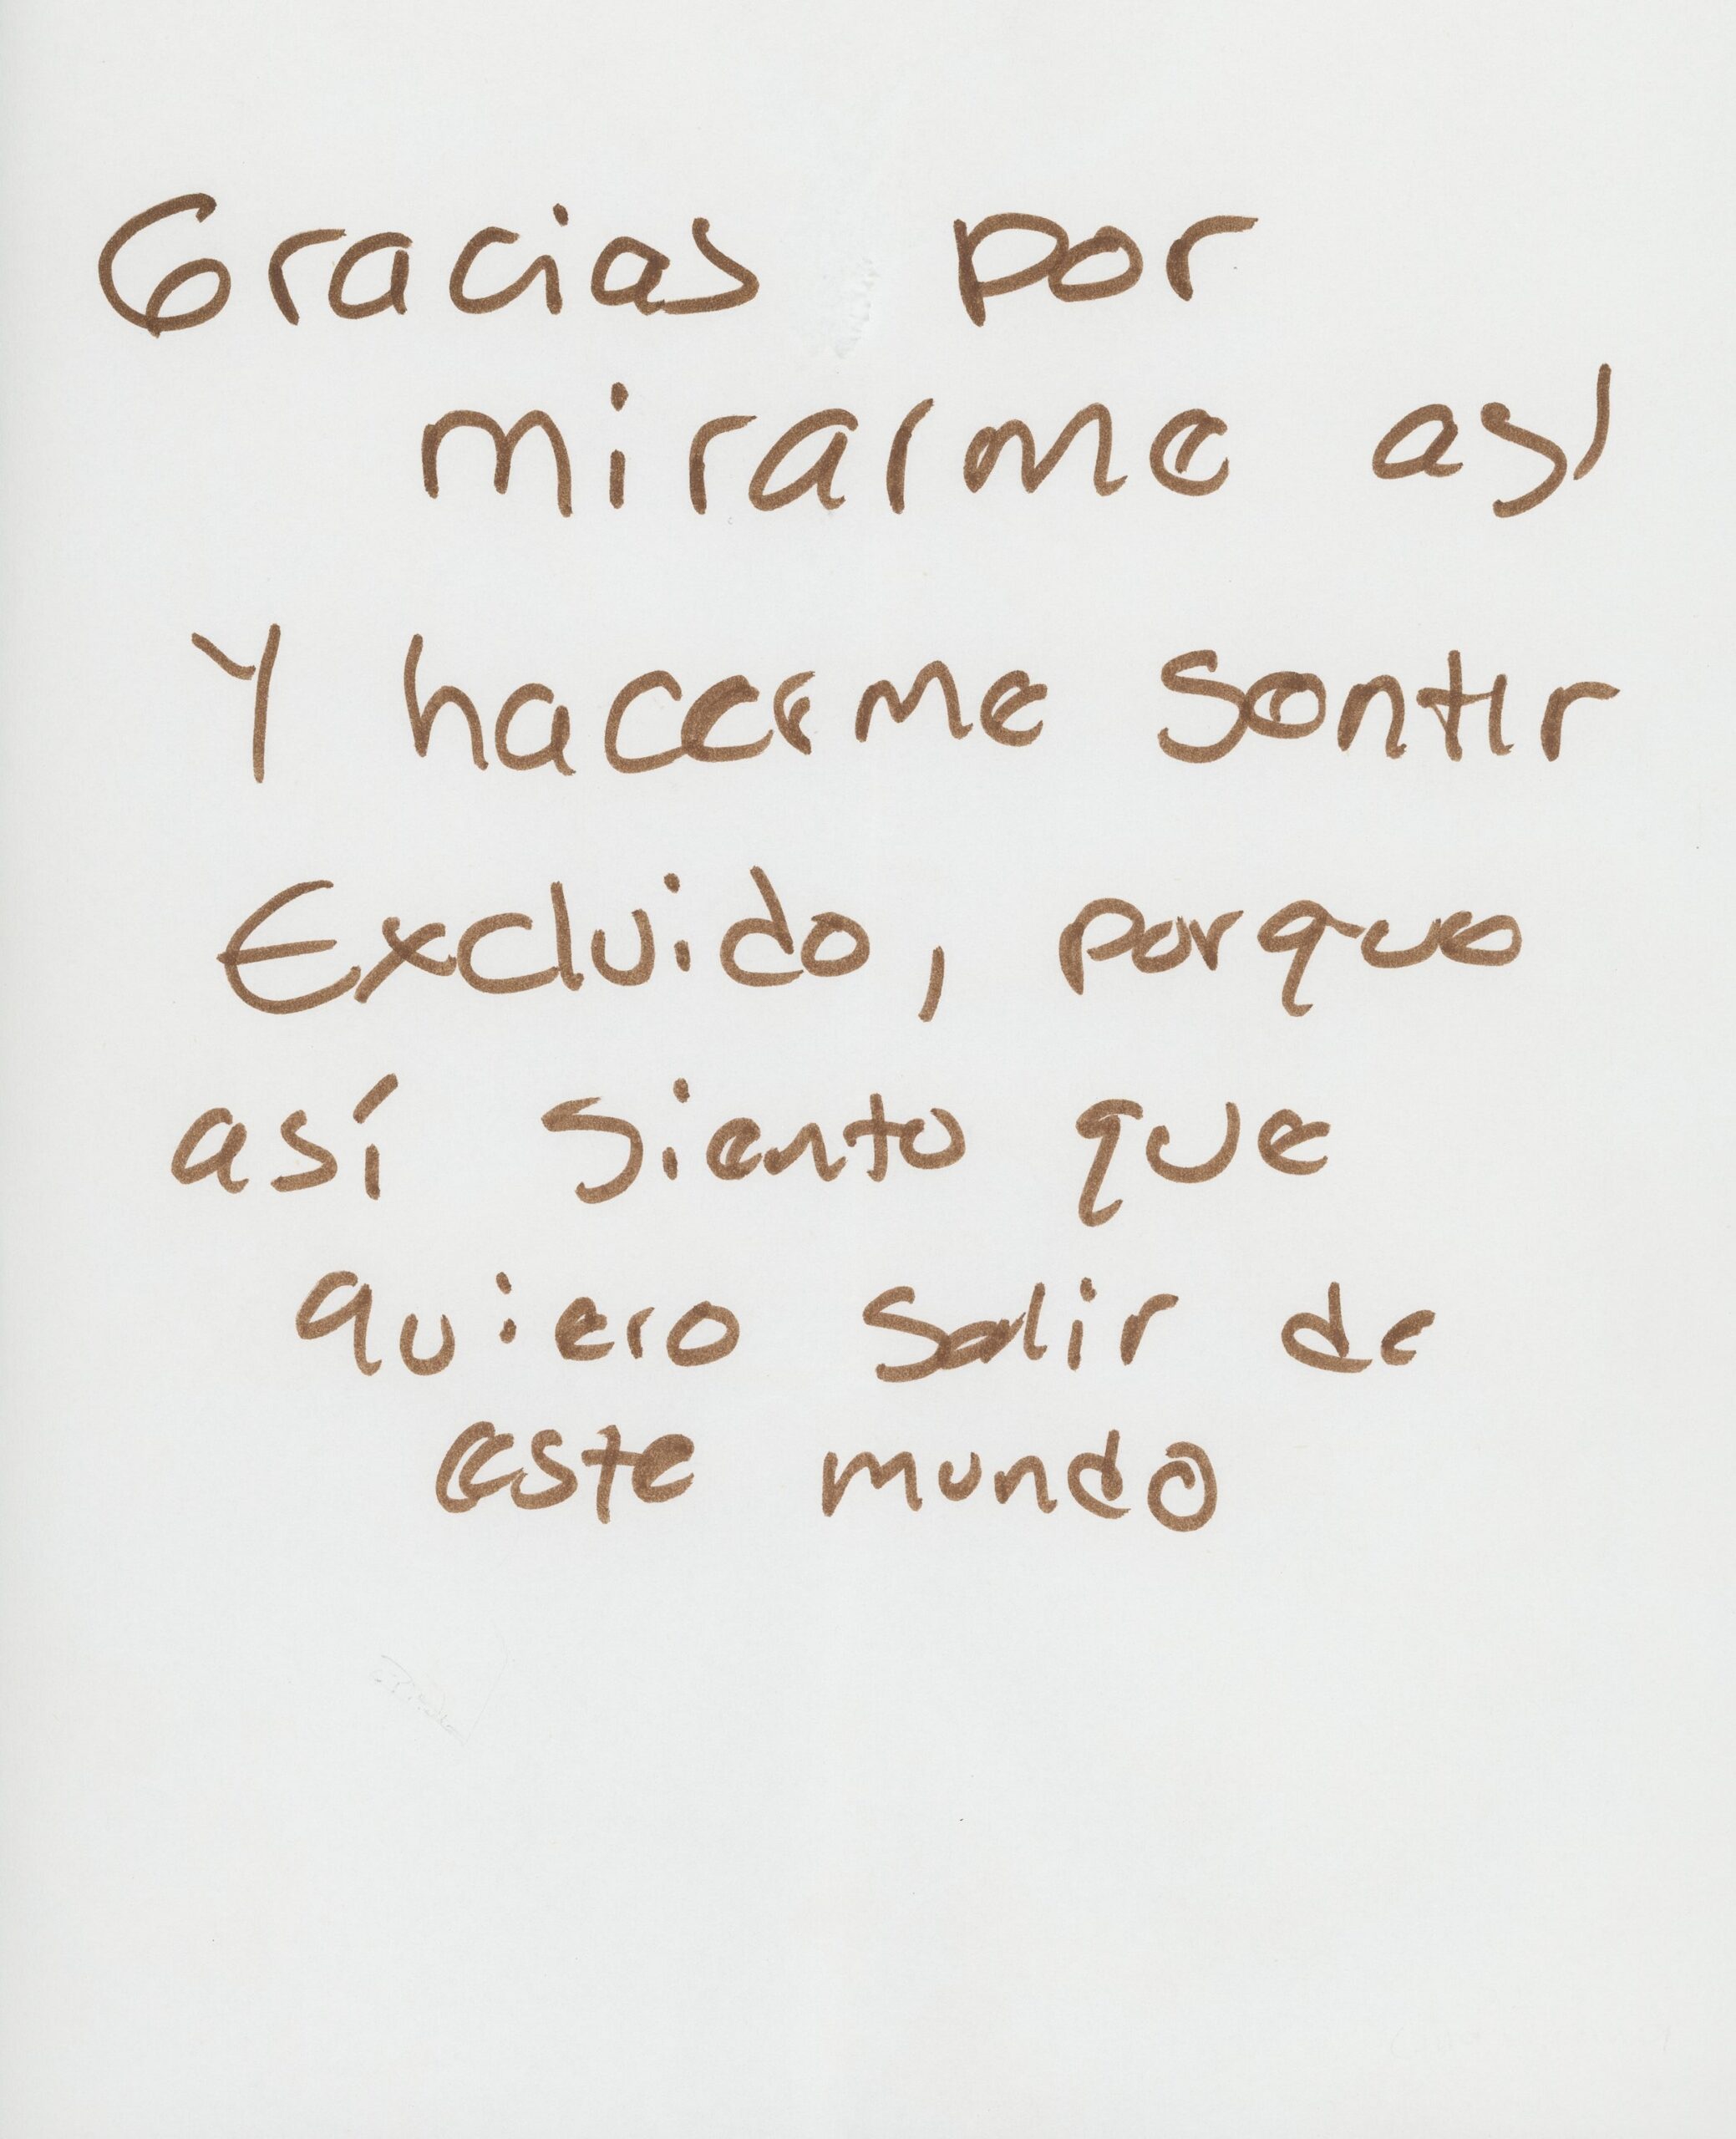 Gracias por
mirarme así
Y hacerme sentir
Excluido, porque
así siento que
quiero salir de
este mundo